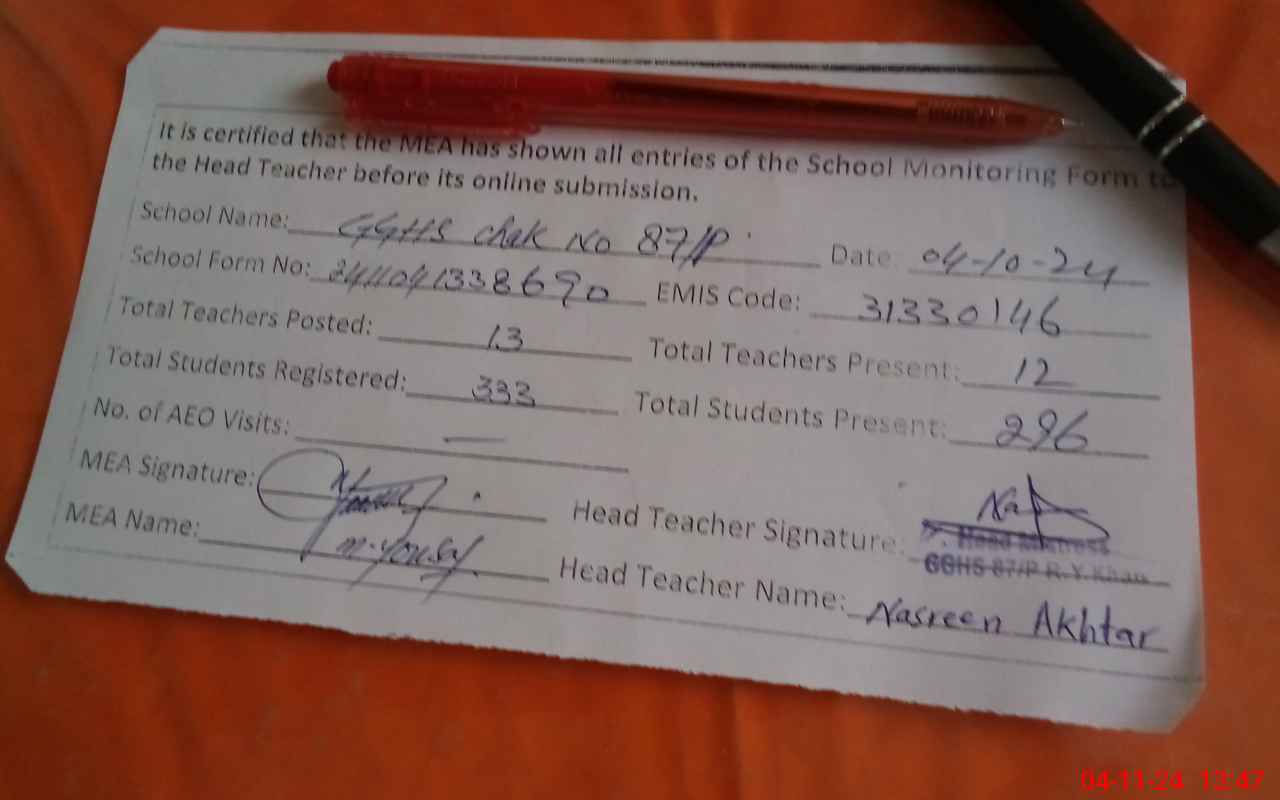 It is certified that the MEA has shown all entries of the School Monitoring Form to
the Head Teacher before its online submission.
School Name: GGHS Chak No 87/P Date: 04-10-24
School Form No: 2411041338690 EMIS Code: 31330146
Total Teachers Posted: 13 Total Teachers Present: 12
Total Students Registered: 333 Total Students Present: 296
No. of AEO Visits: —
MEA Signature: Head Teacher Signature:
Head Mistress
GGHS 87/P R.Y.Khan
MEA Name: M. Yousaf Head Teacher Name: Nasreen Akhtar
04-11-24 13:47